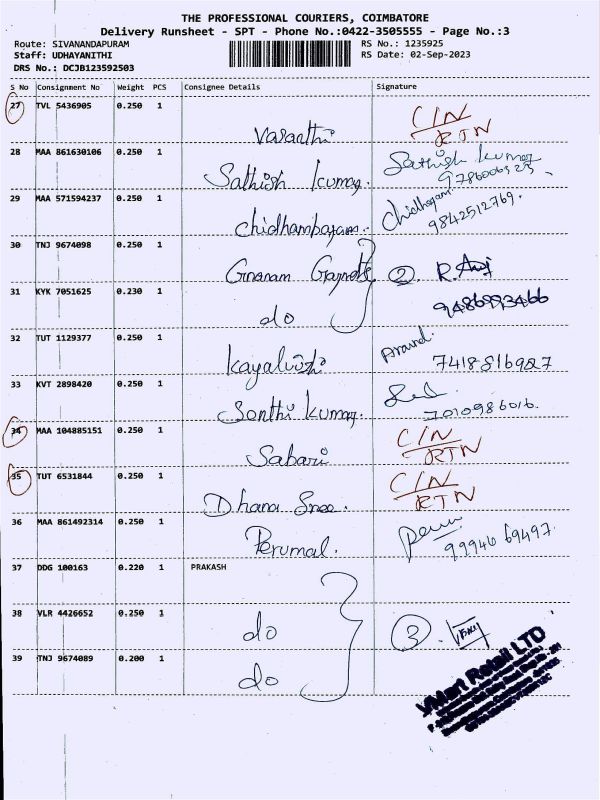 THE PROFESSIONAL COURIERS, COIMBATORE
Delivery Runsheet - SPT - Phone No.:0422-3505555 - Page No.:3
Route: SIVANANDAPURAM RS No.: 1235925
Staff: UDHAYANITHI RS Date: 02-Sep-2023
DRS No.: DCJB123592503
S No Consignment No Weight PCS Consignee Details Signature
27 TVL 5436905 0.250 1 Vasanthi C/N RTN
28 MAA 861630106 0.250 1 Sathish kumar. Sathish kumar
29 MAA 571594237 0.250 1 Chidhambaram. Chidhagam 9842512769.
30 TNJ 9674098 0.250 1 Gnanam ② R.Anij
31 KYK 7051625 0.230 1 do 9486993466
32 TUT 1129377 0.250 1 Aravind. 7418816987
33 KVT 2898420 0.250 1 Senthil kumar 7010986016.
34 MAA 104885151 0.250 1 Sabari C/N RTN
35 TUT 6531844 0.250 1 Dhana Sree. C/N RTN
36 MAA 861492314 0.250 1 Perumal. 99946 69497.
37 DDG 100163 0.220 1 PRAKASH
38 VLR 4426652 0.250 1 do ③.
39 TNJ 9674089 0.200 1 do
VMart Retail LTD